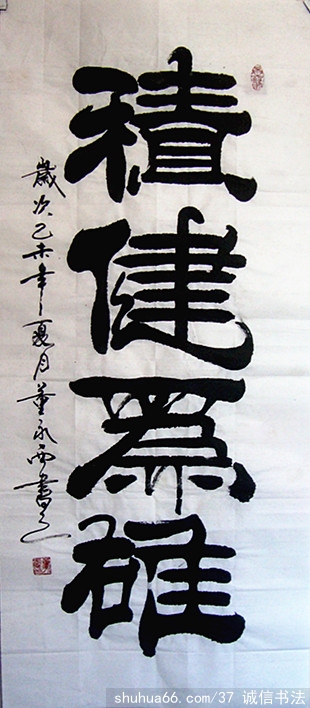 積健為雄
歲次乙未年夏月董永西書之
shuhua66.com/37 诚信书法